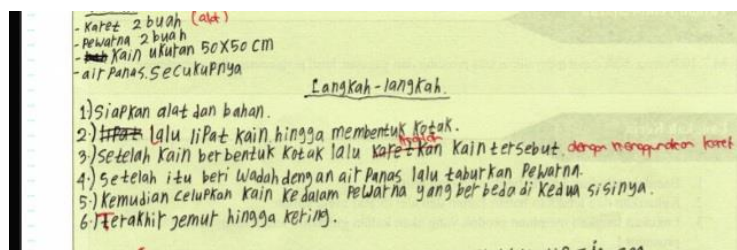 - Karet 2 buah (alat)
- Pewarna 2 buah
- Kain ukuran 50x50 cm
- air Panas. Secukupnya
Langkah-langkah.
1.) Siapkan alat dan bahan.
2.) Lalu lipat kain hingga membentuk kotak.
3.) Setelah kain berbentuk kotak lalu karetkan kain tersebut. dengan menggunakan karet
4.) Setelah itu beri wadah dengan air panas lalu taburkan Pewarna.
5.) Kemudian celupkan kain kedalam pewarna yang berbeda di kedua sisinya.
6.) Terakhir jemur hingga kering.